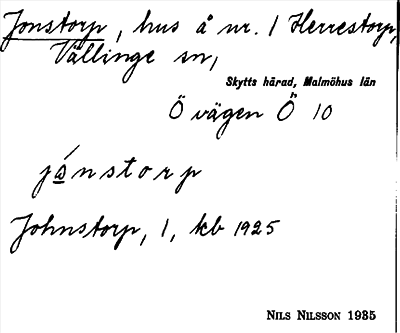 Jonstorp, hus å nr. 1 Herrestorp,
Vällinge sn,
Skytts härad, Malmöhus län
Ö vägen Ö 10
jånstorp
Johnstorp, 1, kb 1925
NILS NILSSON 1935